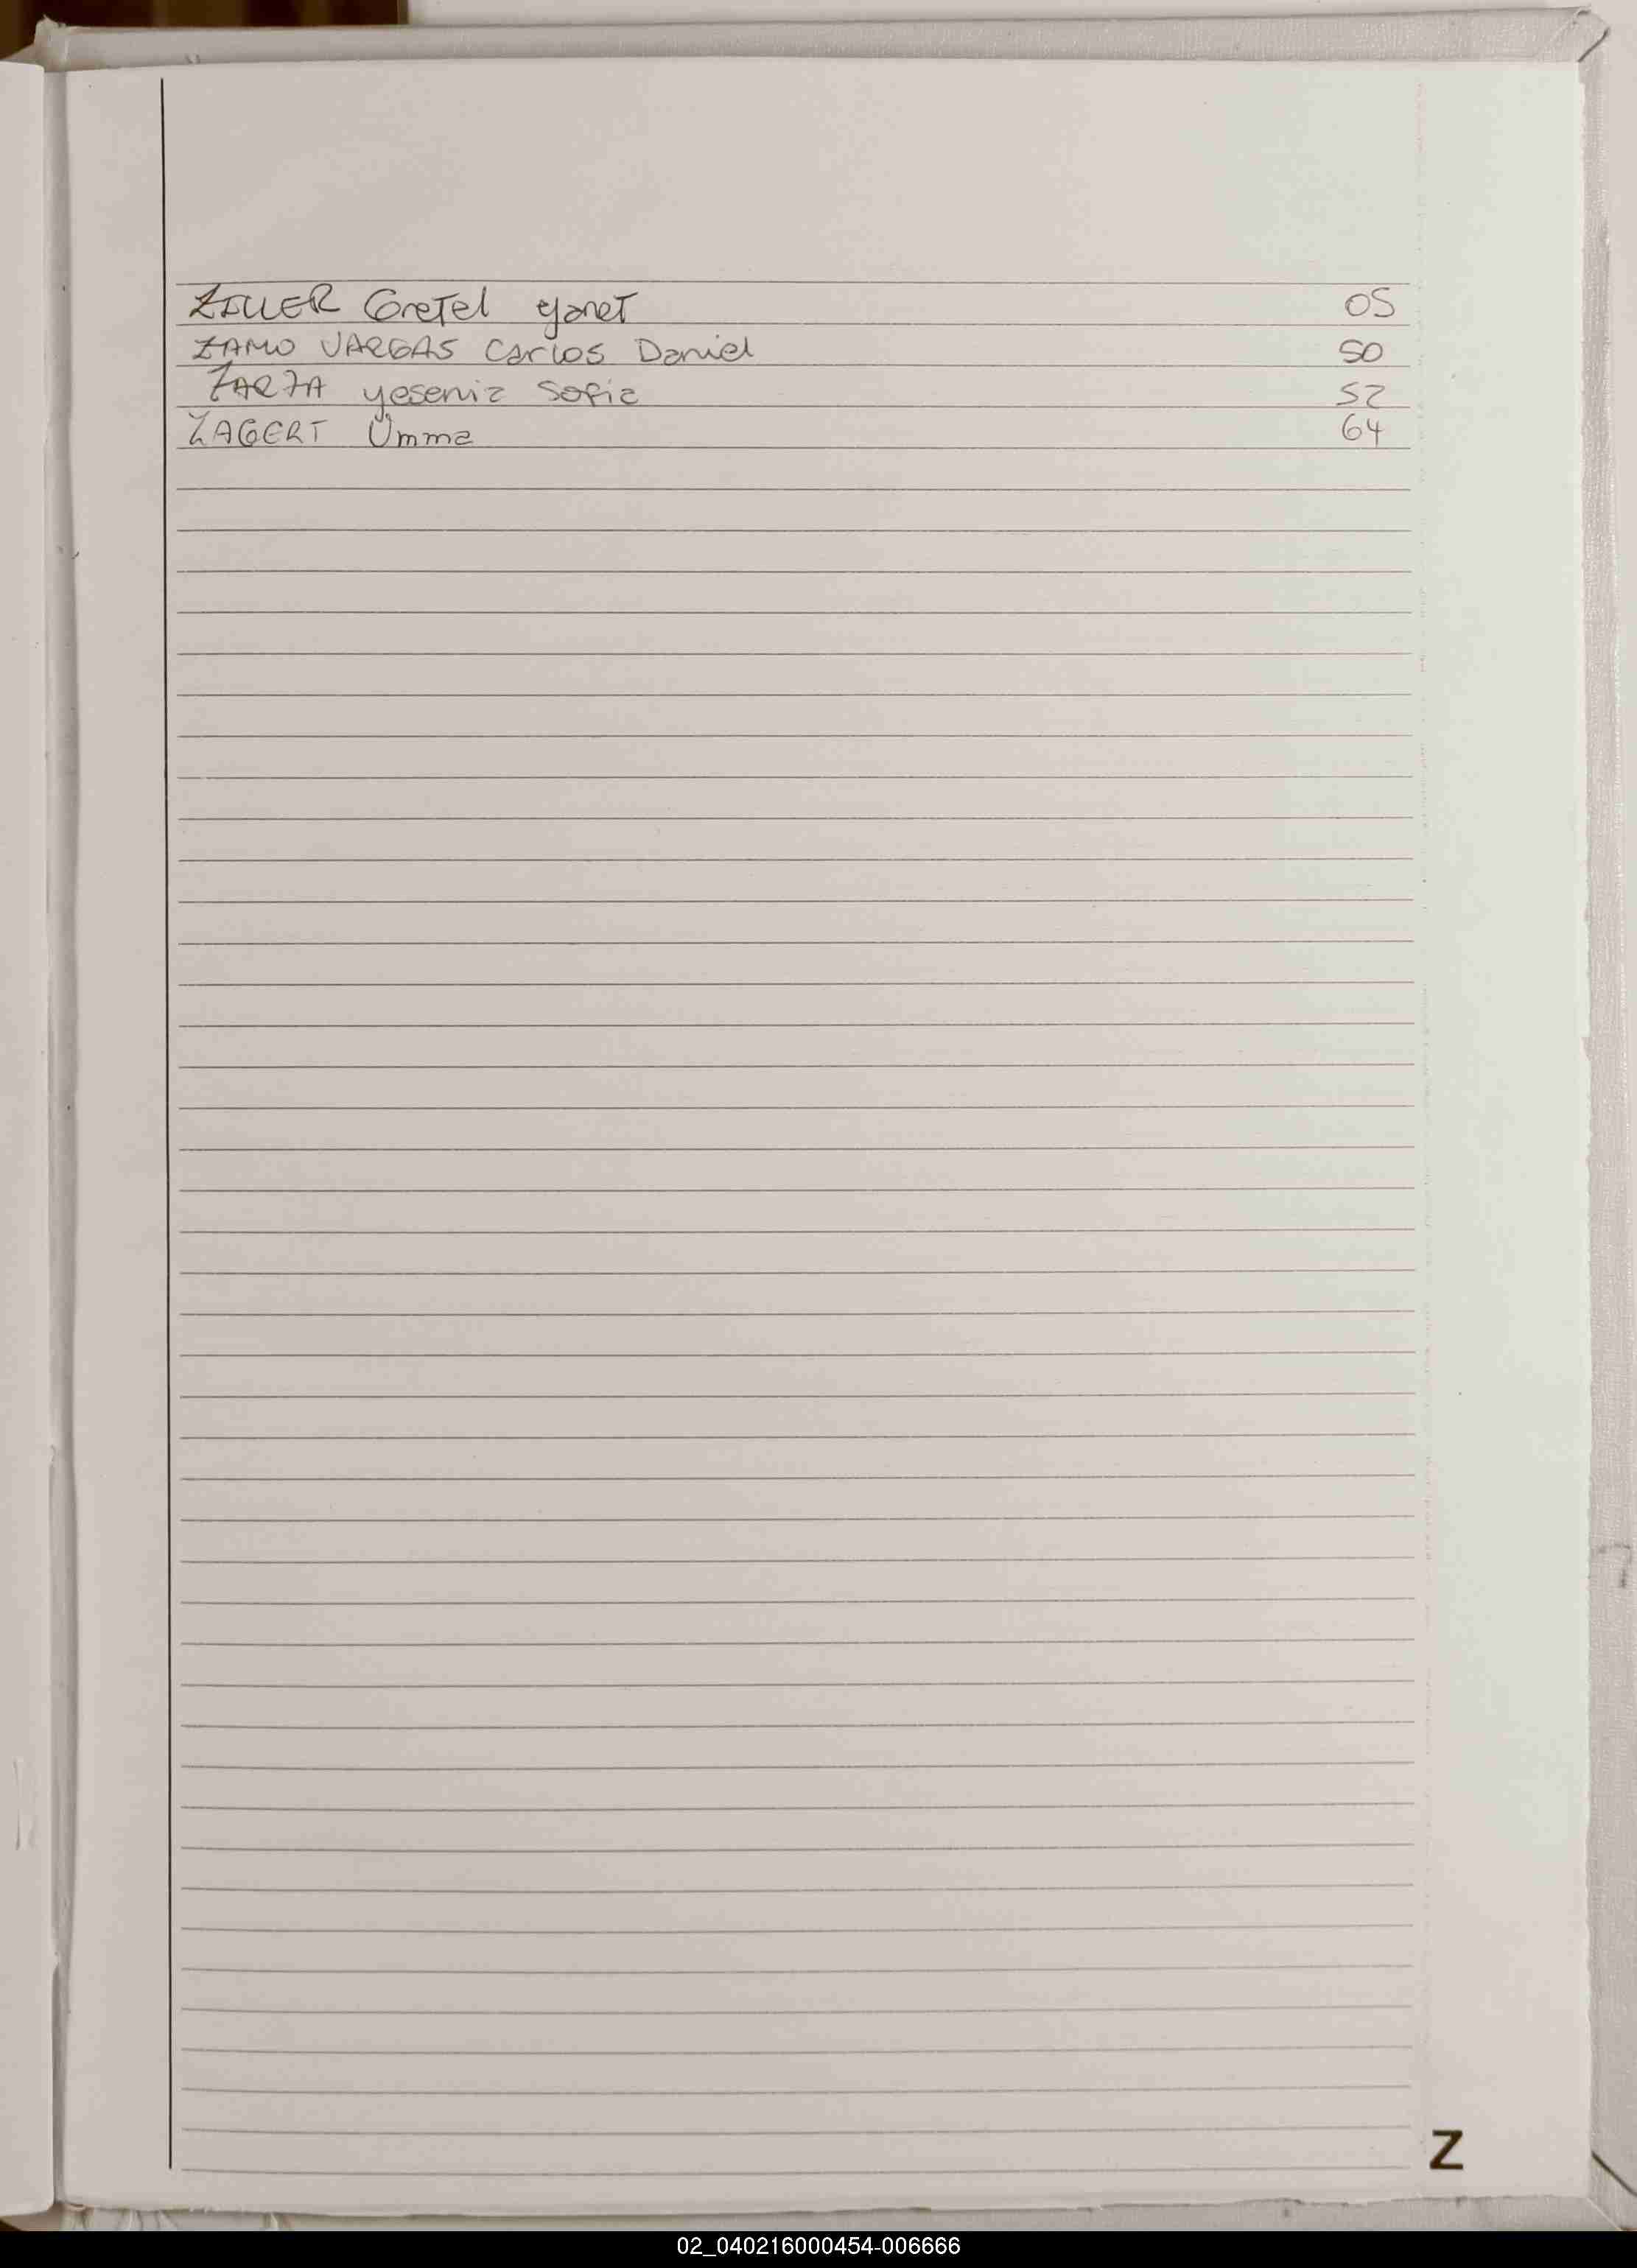 ZILLER Gretel Yanet 05
ZAMO VARGAS Carlos Daniel 50
ZARZA yesenia Sofia 52
ZAGERT Umma 64
Z
02_040216000454-006666